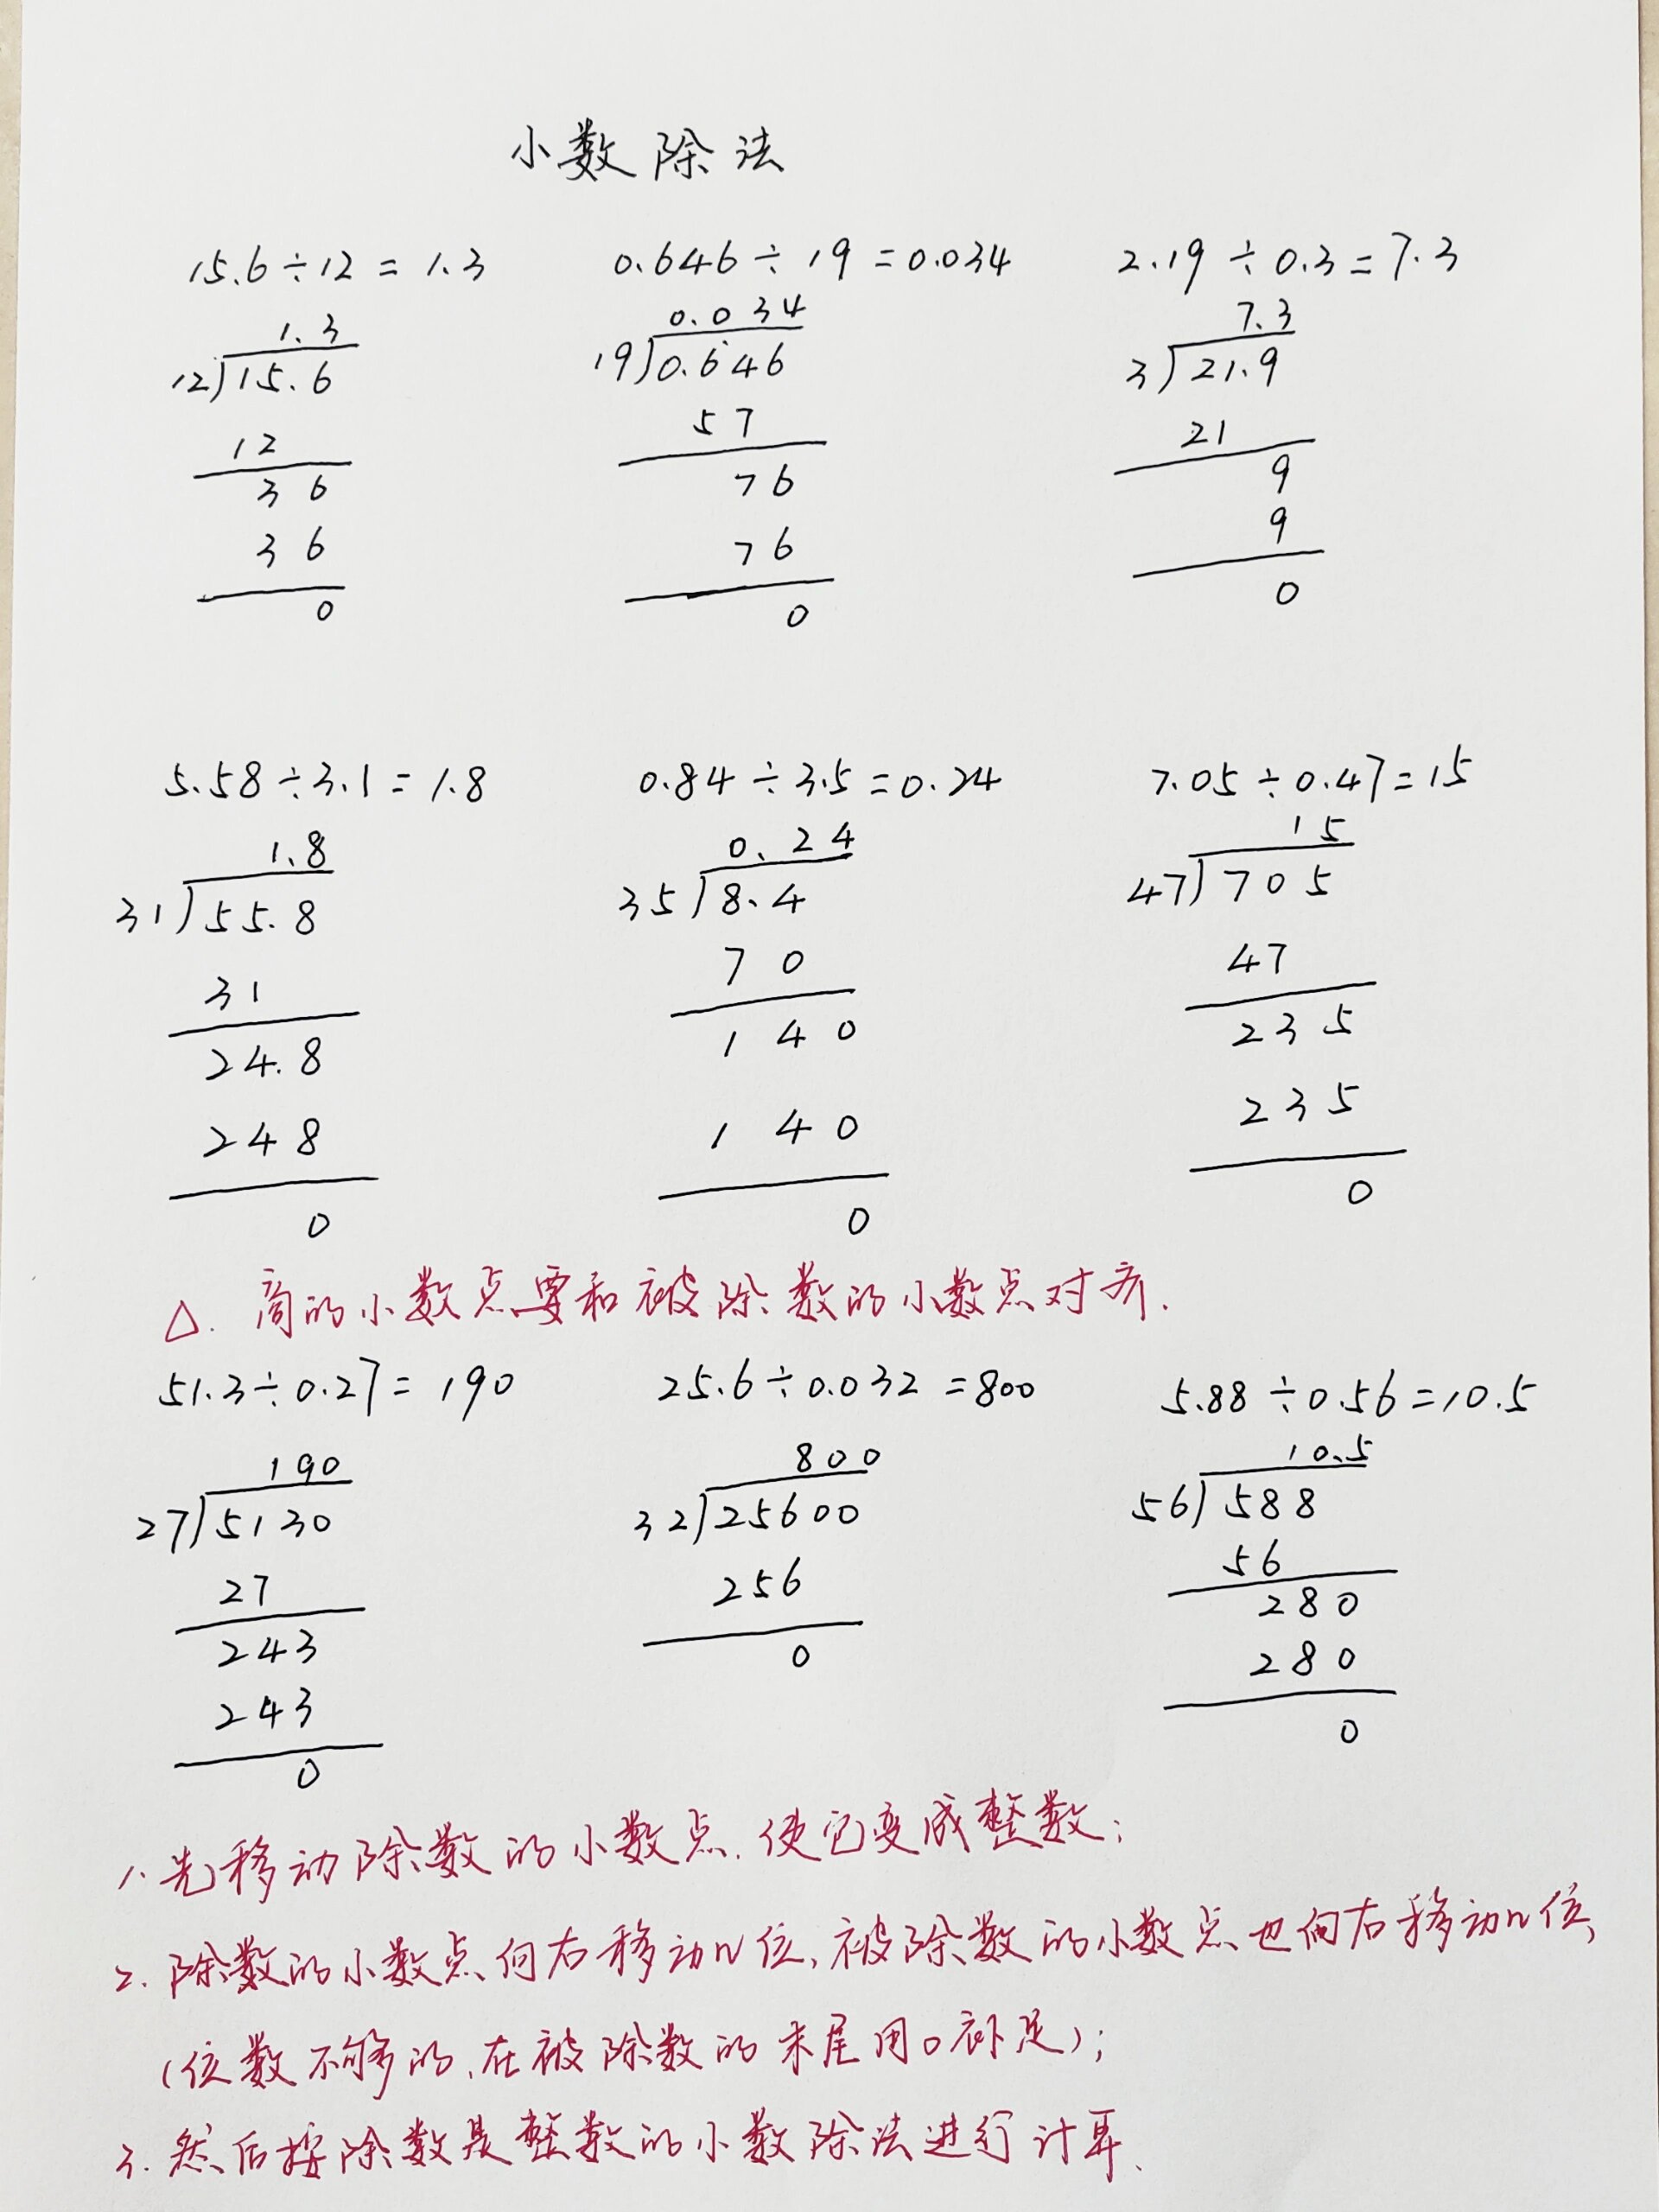 小数除法
15.6÷12=1.3 0.646÷19=0.034 2.19÷0.3=7.3
1.3 0.034 7.3
12)15.6 19)0.646 3)21.9
12 57 21
36 76 9
36 76 9
0 0 0
5.58÷3.1=1.8 0.84÷3.5=0.24 7.05÷0.47=15
1.8 0.24 15
31)55.8 35)8.4 47)705
31 70 47
24.8 140 235
248 140 235
0 0 0
△.商的小数点要和被除数的小数点对齐.
51.3÷0.27=190 25.6÷0.032=800 5.88÷0.56=10.5
190 800 10.5
27)5130 32)25600 56)588
27 256 56
243 0 280
243 280
0 0
1.先移动除数的小数点,使它变成整数;
2.除数的小数点向右移动n位,被除数的小数点也向右移动n位,
(位数不够的,在被除数的末尾用0补足);
3.然后按除数是整数的小数除法进行计算.